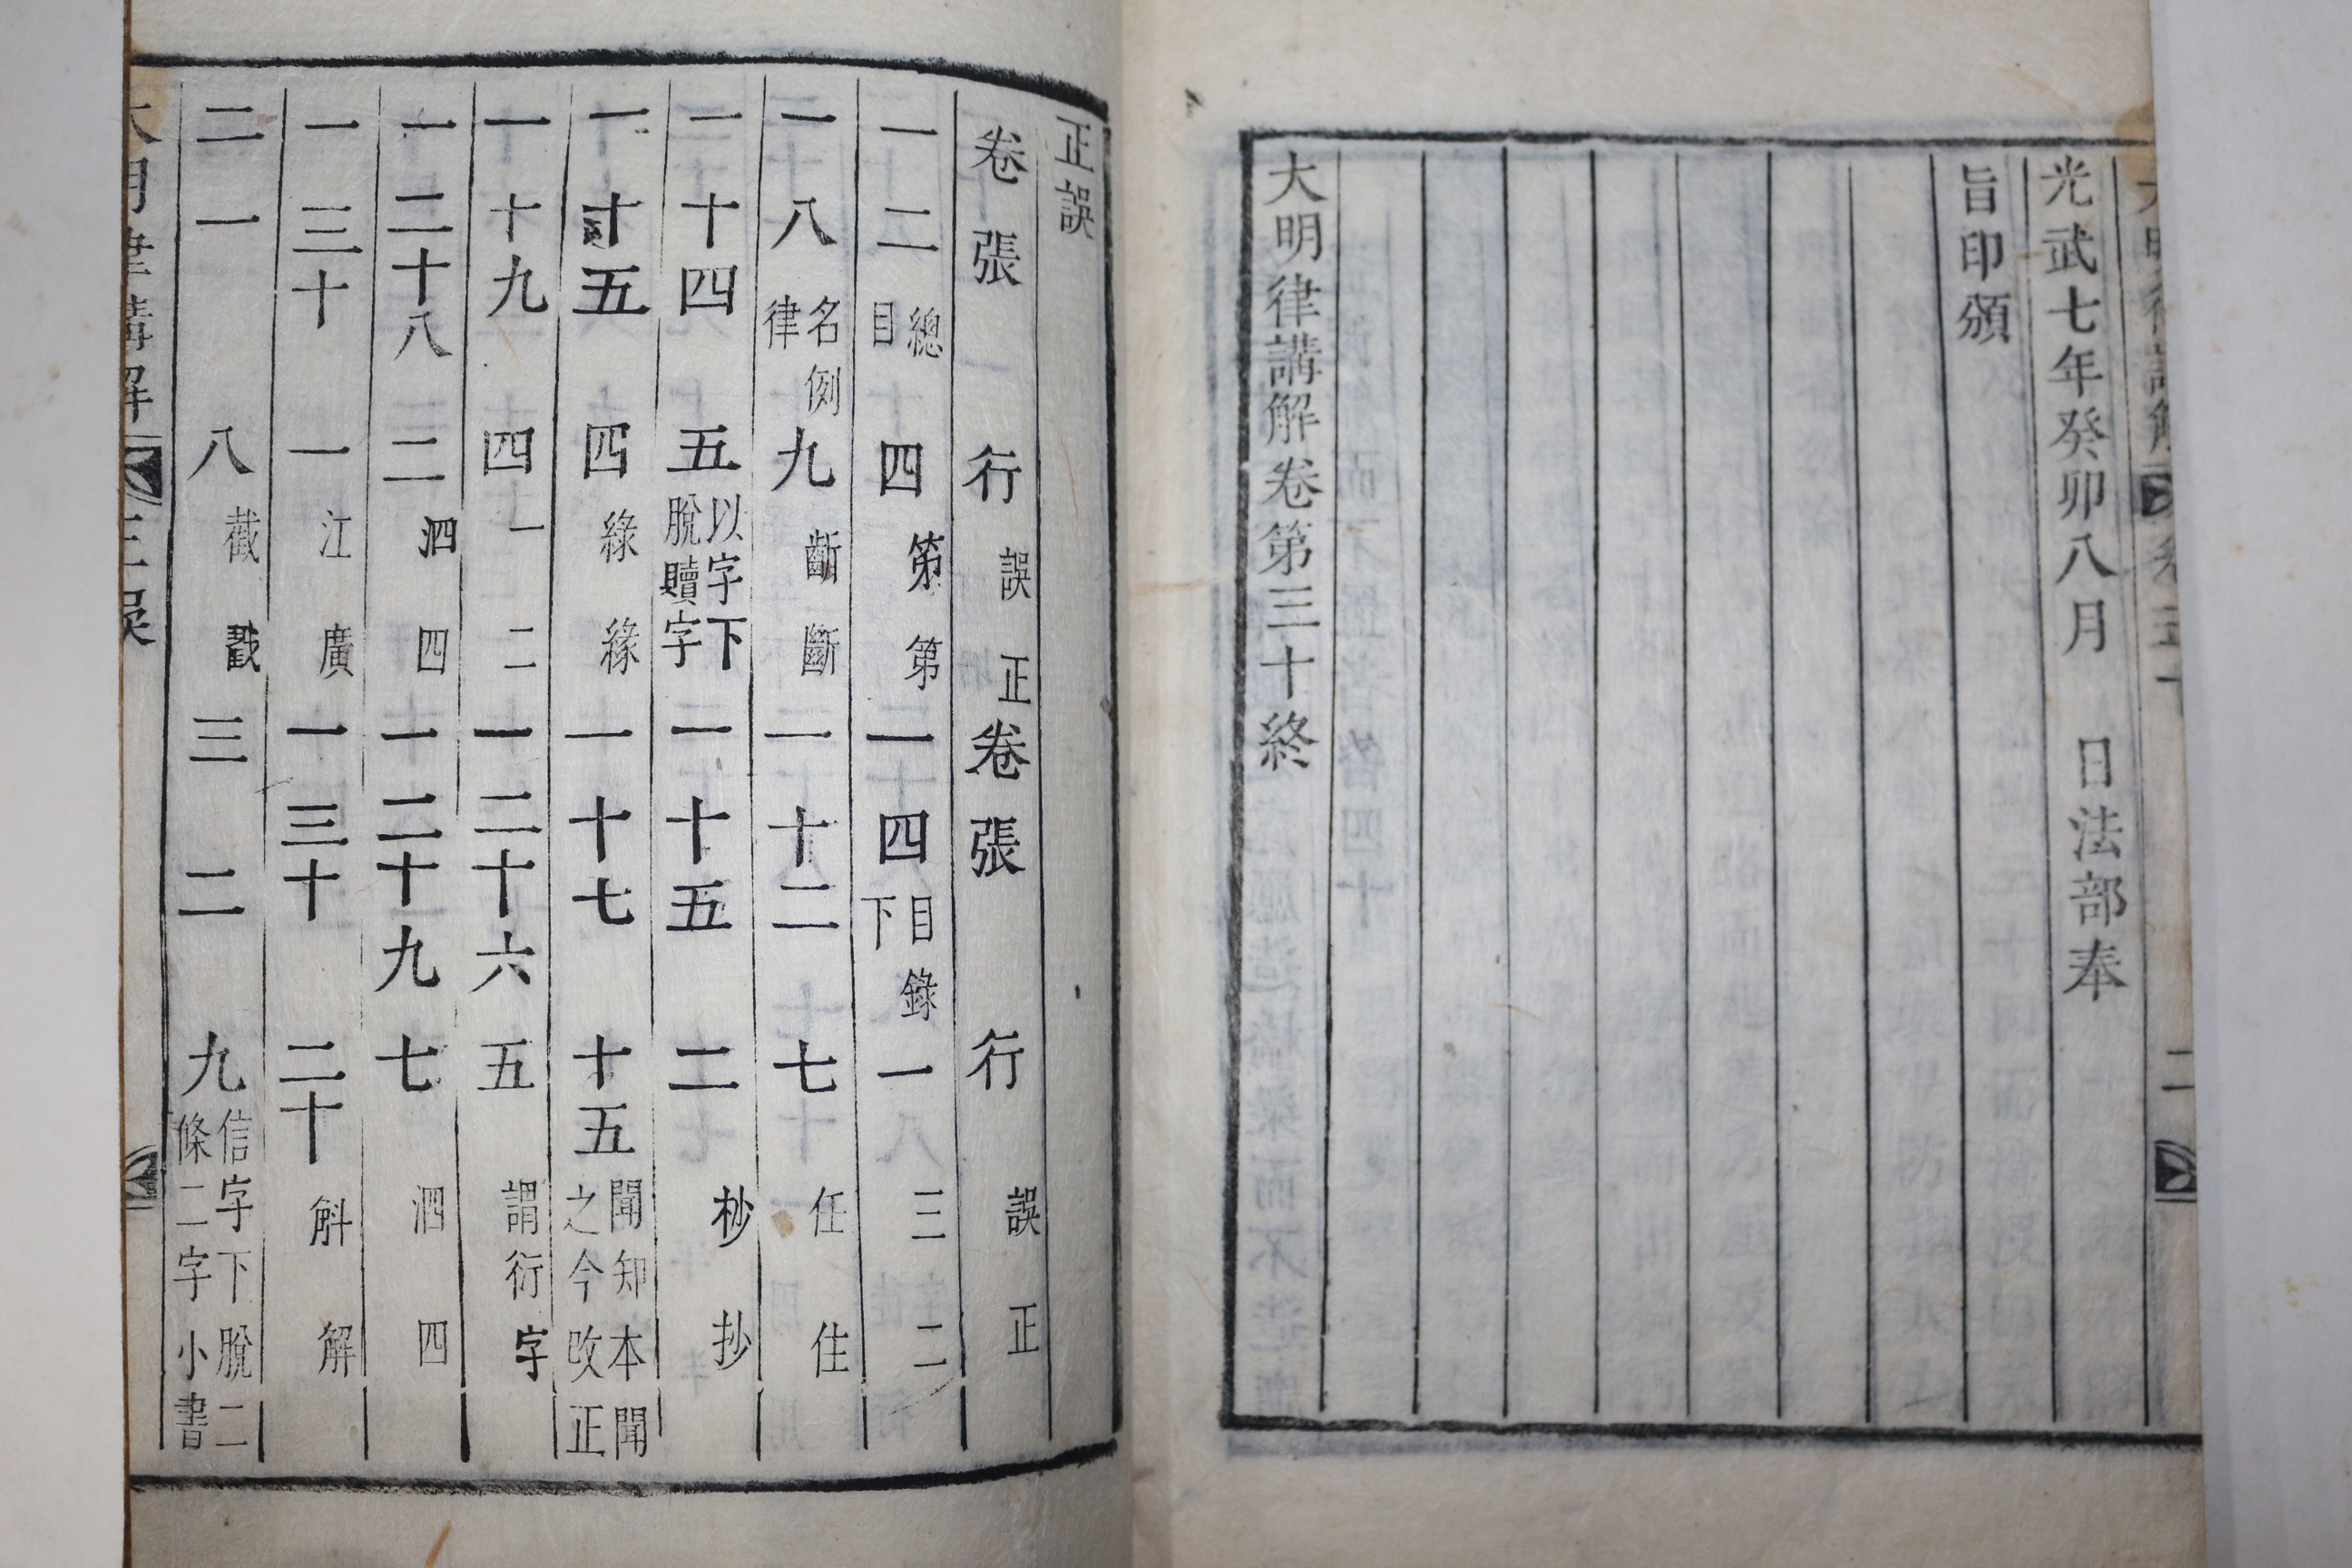 光武七年癸卯八月 日法部奉
旨印頒
大明律講解卷第三十終
正誤
卷 張 行 誤 正 卷 張 行 誤 正
一 二 總目 四 苐 第 一 四 目錄下 一 三 二
一 八 名例律 九 斷 一 十二 七 任 住
一 十四 五 以字下脫贖字 一 十五 二 杪 抄
一 十五 四 綠 緣 一 十七 十五 聞知本聞之今改正
一 十九 四 一 二 一 二十六 五 謂衍字
一 二十八 二 泗 四 一 二十九 七 泗 四
一 三十 一 江 廣 一 三十 二十 斛 解
二 一 八 截 戳 三 二 九 信字下脫二條二字小書
大明律講解 正誤